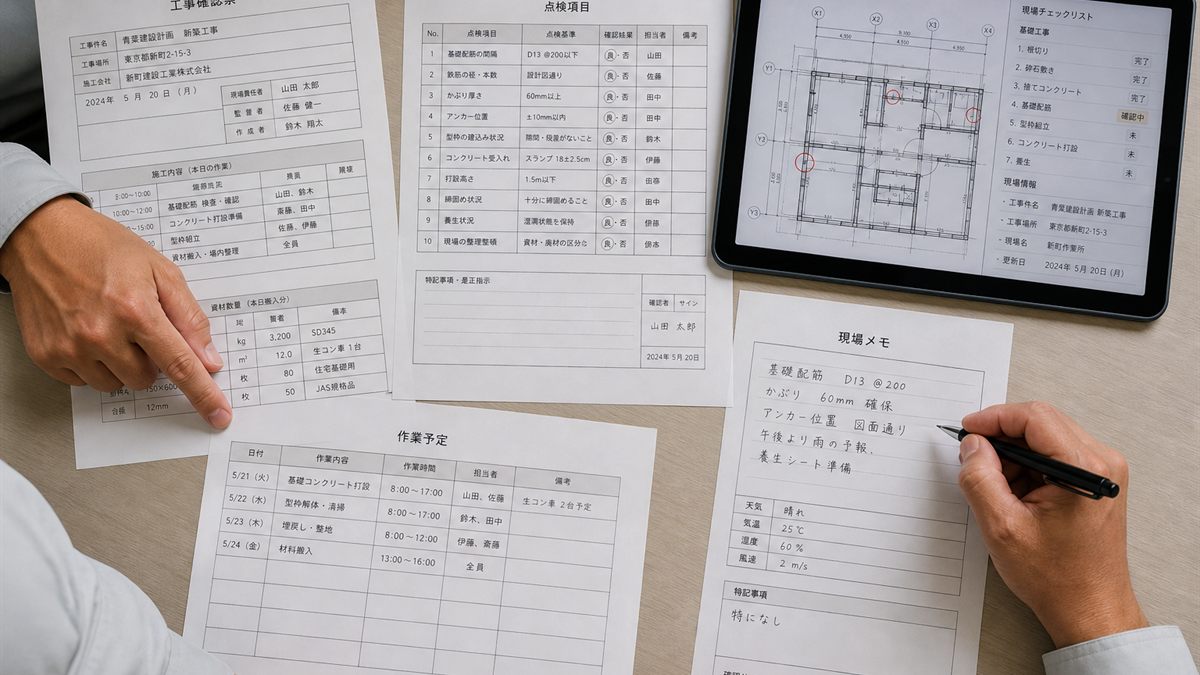 工事確認票
工事件名 青葉建設計画 新築工事
工事場所 東京都新町2-15-3
施工会社 新町建設工業株式会社
2024年 5月 20日（月）
現場責任者 山田 太郎
監督者 佐藤 健一
作成者 鈴木 翔太
施工内容（本日の作業）
8:00～10:00
10:00～12:00 基礎配筋 検査・確認 山田、鈴木
～15:00 コンクリート打設準備 斎藤、田中
型枠組立 佐藤、伊藤
資材搬入・場内整理 全員
資材数量（本日搬入分）
kg 3,200 SD345
m³ 12.0 生コン車 1台
枚 80 住宅基礎用
150×600 枚 50 JAS規格品
12mm
点検項目
No. 点検項目 点検基準 確認結果 担当者 備考
1 基礎配筋の間隔 D13 @200以下 良・否 山田
2 鉄筋の径・本数 設計図通り 良・否 佐藤
3 かぶり厚さ 60mm以上 良・否 田中
4 アンカー位置 ±10mm以内 良・否 田中
5 型枠の建込み状況 隙間・段差がないこと 良・否 鈴木
6 コンクリート受入れ スランプ 18±2.5cm 良・否 伊藤
7 打設高さ 1.5m以下 良・否
8 締固め状況 十分に締固めること 良・否 田中
9 養生状況 湿潤状態を保持 良・否
10 現場の整理整頓 資材・廃材の区分 良・否
特記事項・是正指示
確認者 サイン
山田 太郎
2024年 5月 20日
X1 X2 X3 X4
9,100
4,550 4,550
Y1
Y2
Y3
現場チェックリスト
基礎工事
1. 根切り 完了
2. 砕石敷き 完了
3. 捨てコンクリート 完了
4. 基礎配筋 確認中
5. 型枠組立 未
6. コンクリート打設 未
7. 養生 未
現場情報
- 工事件名 青葉建設計画 新築工事
- 工事場所 東京都新町2-15-3
- 現場名 新町作業所
- 更新日 2024年 5月 20日（月）
作業予定
日付 作業内容 作業時間 担当者 備考
5/21（火） 基礎コンクリート打設 8:00～17:00 山田、佐藤 生コン車 2台予定
5/22（木） 型枠解体・清掃 8:00～17:00 鈴木、田中
5/23（木） 埋戻し・整地 8:00～12:00 伊藤、斎藤
5/24（金） 材料搬入 13:00～16:00 全員
現場メモ
基礎配筋 D13 @200
かぶり 60mm 確保
アンカー位置 図面通り
午後より雨の予報、
養生シート準備
天気 晴れ
気温 25℃
湿度 60%
風速 2 m/s
特記事項
特になし